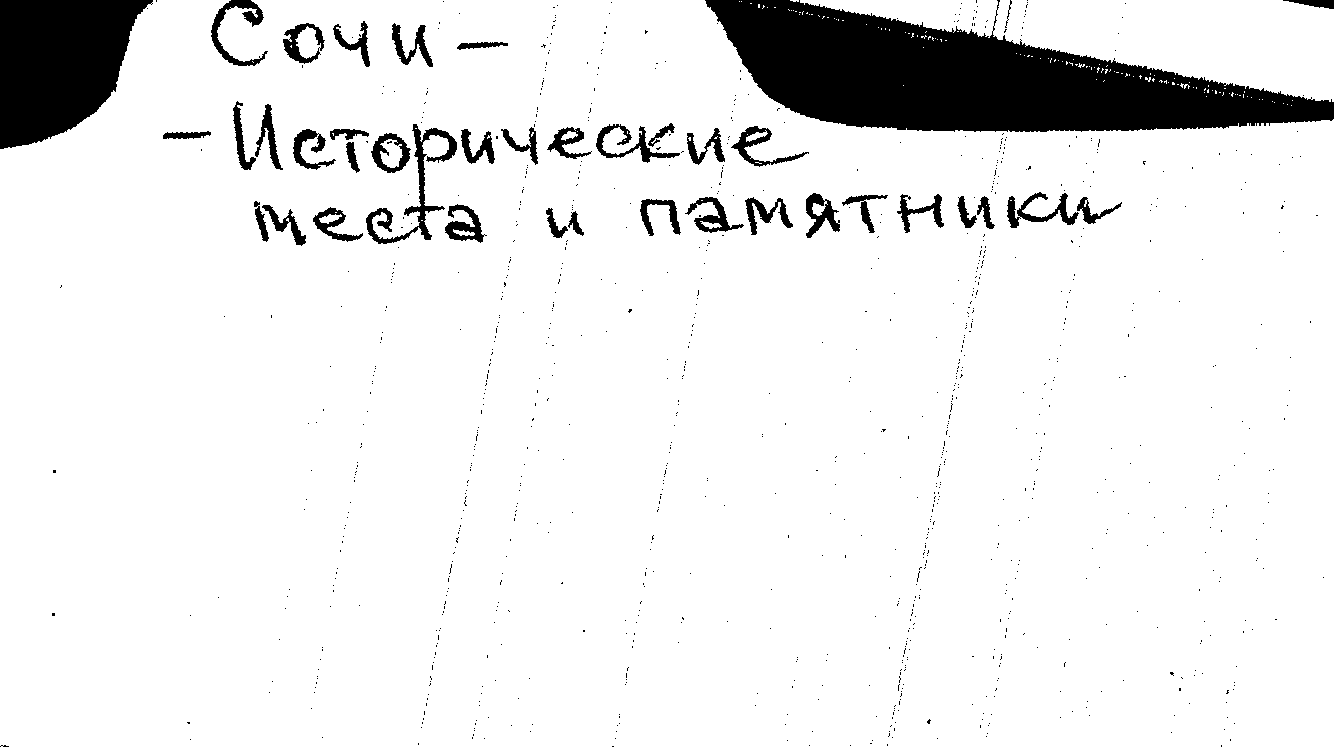 Сочи —
— Исторические
места и памятники